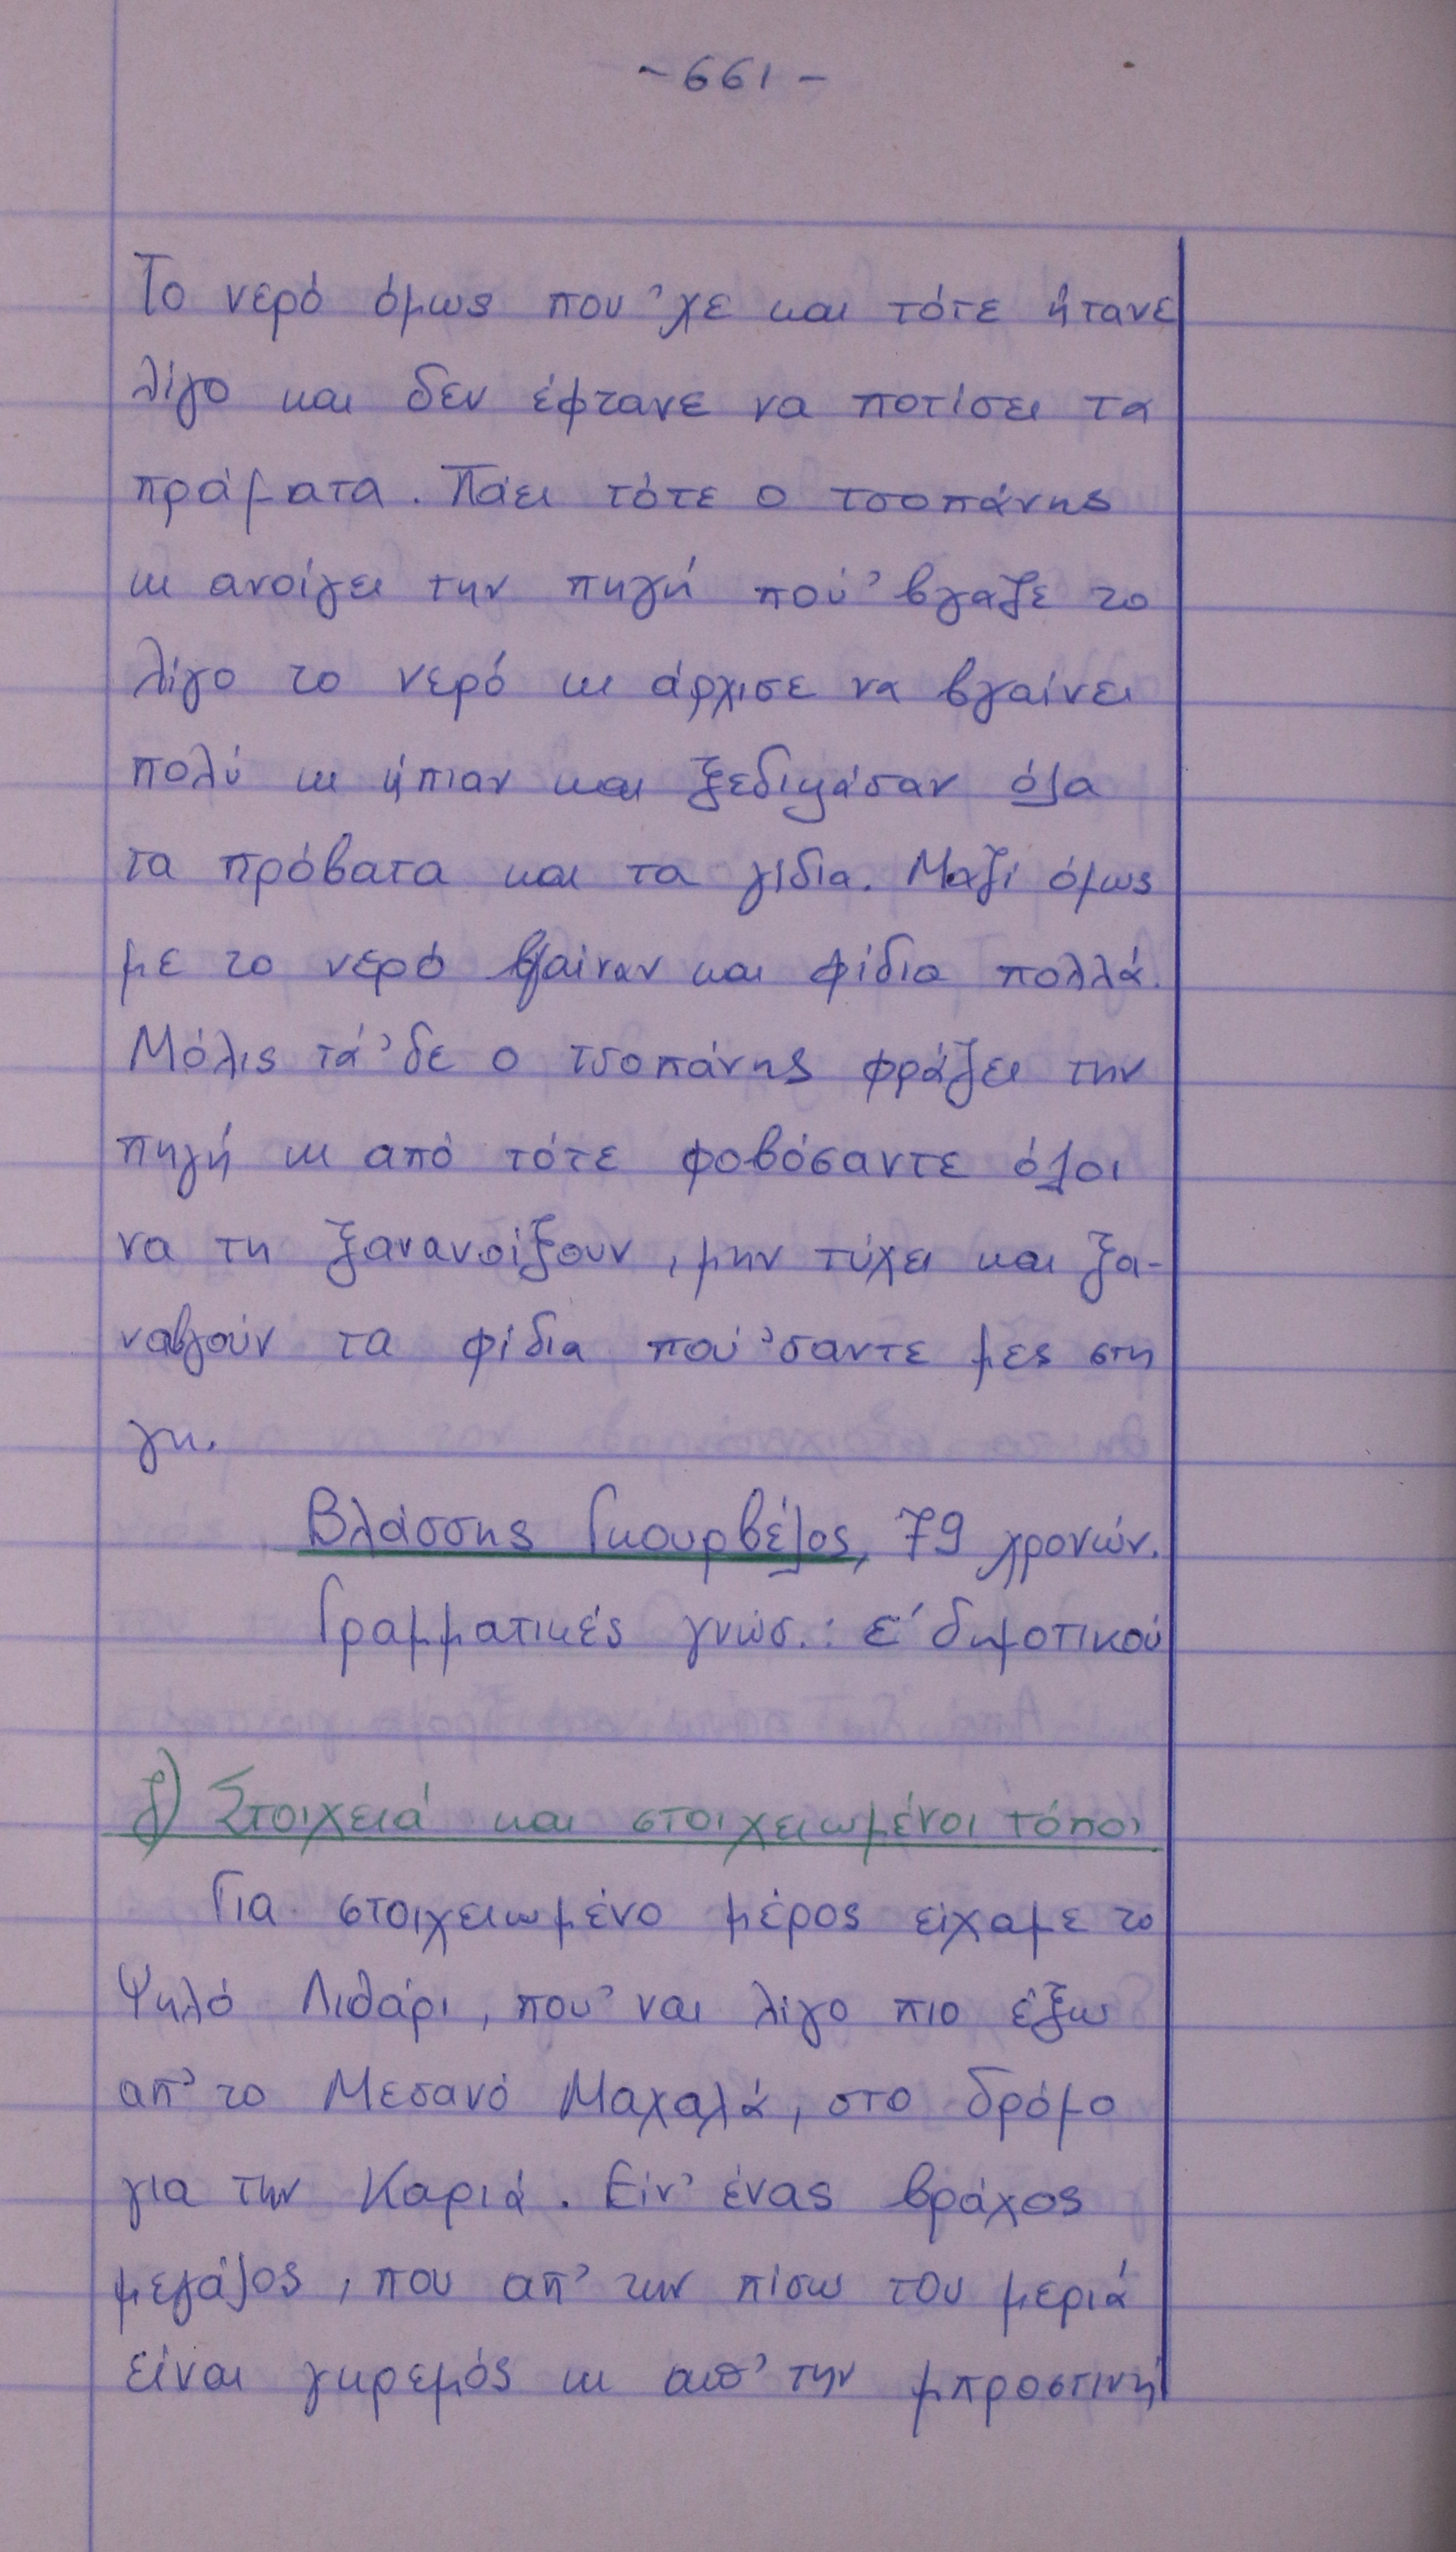 - 661 -
Το νερό όμως που 'χε και τότε ήτανε
λίγο και δεν έφτανε να ποτίσει τα
πράματα. Πάει τότε ο τσοπάνης
κι ανοίγει την πηγή πού 'βγαζε το
λίγο το νερό κι άρχισε να βγαίνει
πολύ κι ήπιαν και ξεδιψάσαν όλα
τα πρόβατα και τα γίδια. Μαζί όμως
με το νερό βγαίναν και φίδια πολλά.
Μόλις τά 'δε ο τσοπάνης φράζει την
πηγή κι από τότε φοβόσαντε όλοι
να τη ξανανοίξουν, μην τύχει και ξα-
ναβγούν τα φίδια πού 'σαντε μες στη
γη.
Βλάσσης Γκουρβέλος, 79 χρονών.
Γραμματικές γνώσ.: ε' δημοτικού
ζ) Στοιχειά και στοιχειωμένοι τόποι
Για στοιχειωμένο μέρος είχαμε το
Ψηλό Λιθάρι, που 'ναι λίγο πιο έξω
απ' το Μεσανό Μαχαλά, στο δρόμο
για την Καριά. Είν' ένας βράχος
μεγάλος, που απ' την πίσω του μεριά
είναι γκρεμός κι απ' την μπροστινή